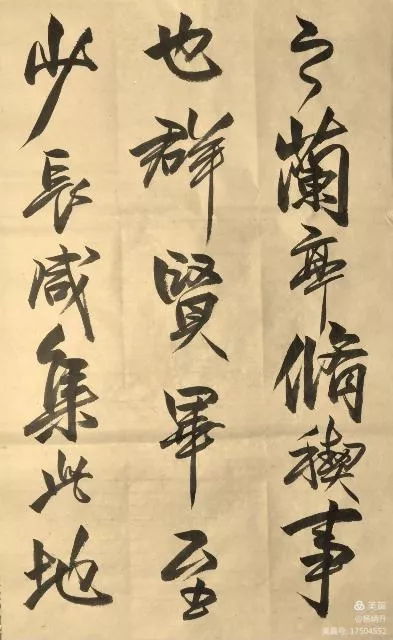 之蘭亭脩禊事
也群賢畢至
少長咸集此地
美篇
@杨靖升
美篇号:17504552